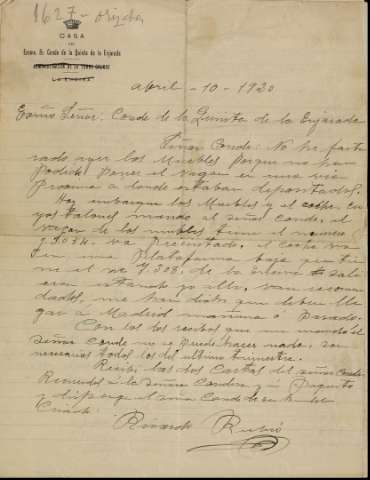 1627-orizaba
CASA
DEL
Excmo. Sr. Conde de la Quinta de la Enjarada
ADMINISTRACION DE LA TORRE GRANDE
Abril - 10 - 1920
Exmo Señor. Conde de la Quinta de la Enjarada
Señor Conde: No he factu
rado ayer los Muebles porque no han
podido poner el vagon en una via
procsima a donde estaban depositados.
Hoy embarque los Muebles y el coche cu
yos talones mando al señor Conde, el
vagon de los muebles tiene el numero
va precintado, el coche va
en una plataforma baja que tie
ne el nº 7308, de la
estando yo alli, van recomen
dados, me han dicho que deben lle
gar a Madrid mañana ó pasado.
Con los recibos que me mandó el
señor Conde no se puede hacer nada, son
necesarios todos los del ultimo trimestre.
Recibi las dos Cartas del señor Conde
Recuerdos á la señora Condesa y á Paquito
y disponga el señor Conde de su humilde
Criado
Ricardo Rubio